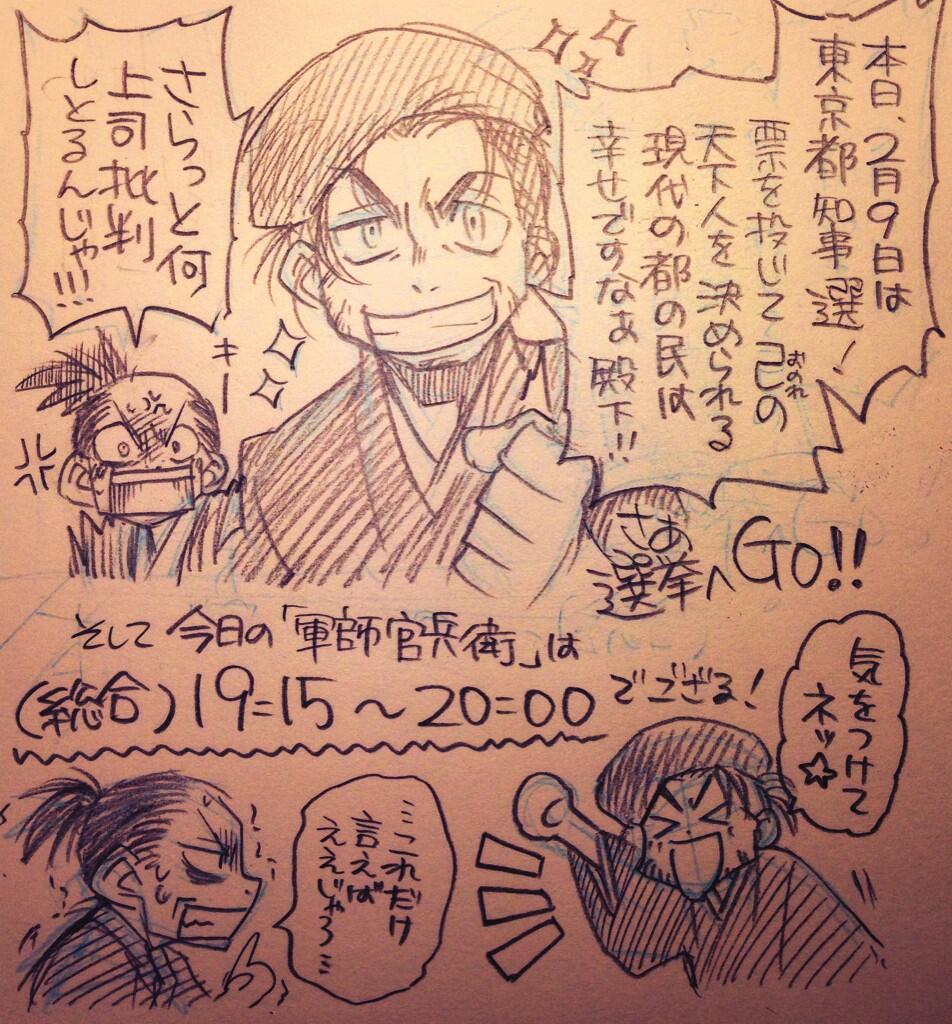 本日、2月9日は
東京都知事選!
票を投じて己の
おのれ
天下人を決められる
現代の都の民は
幸せですなぁ殿下!!
さらっと何
上司批判
しとるんじゃ!!!
キー
さあ
選挙へGO!!
そして今日の「軍師官兵衛」は
(総合)19:15〜20:00でござる!
気をつけて
ネッ☆
…これだけ
言えば
ええじゃろ…